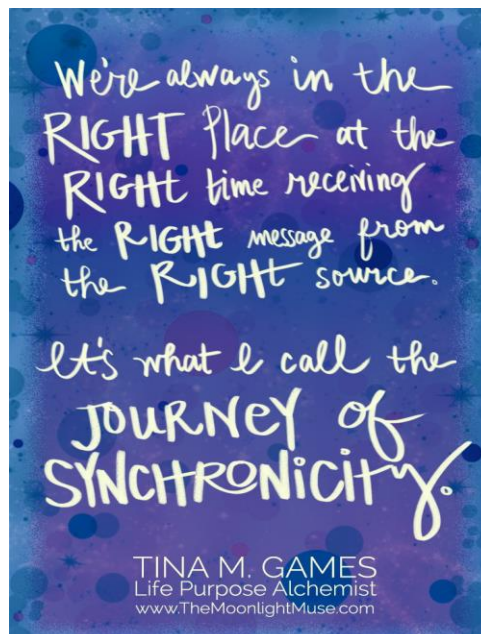 We're always in the
RIGHT Place at the
RIGHT time receiving
the RIGHT message from
the RIGHT source.
It's what I call the
JOURNEY of
SYNCHRONiCity.
TINA M. GAMES
Life Purpose Alchemist
www.TheMoonlightMuse.com